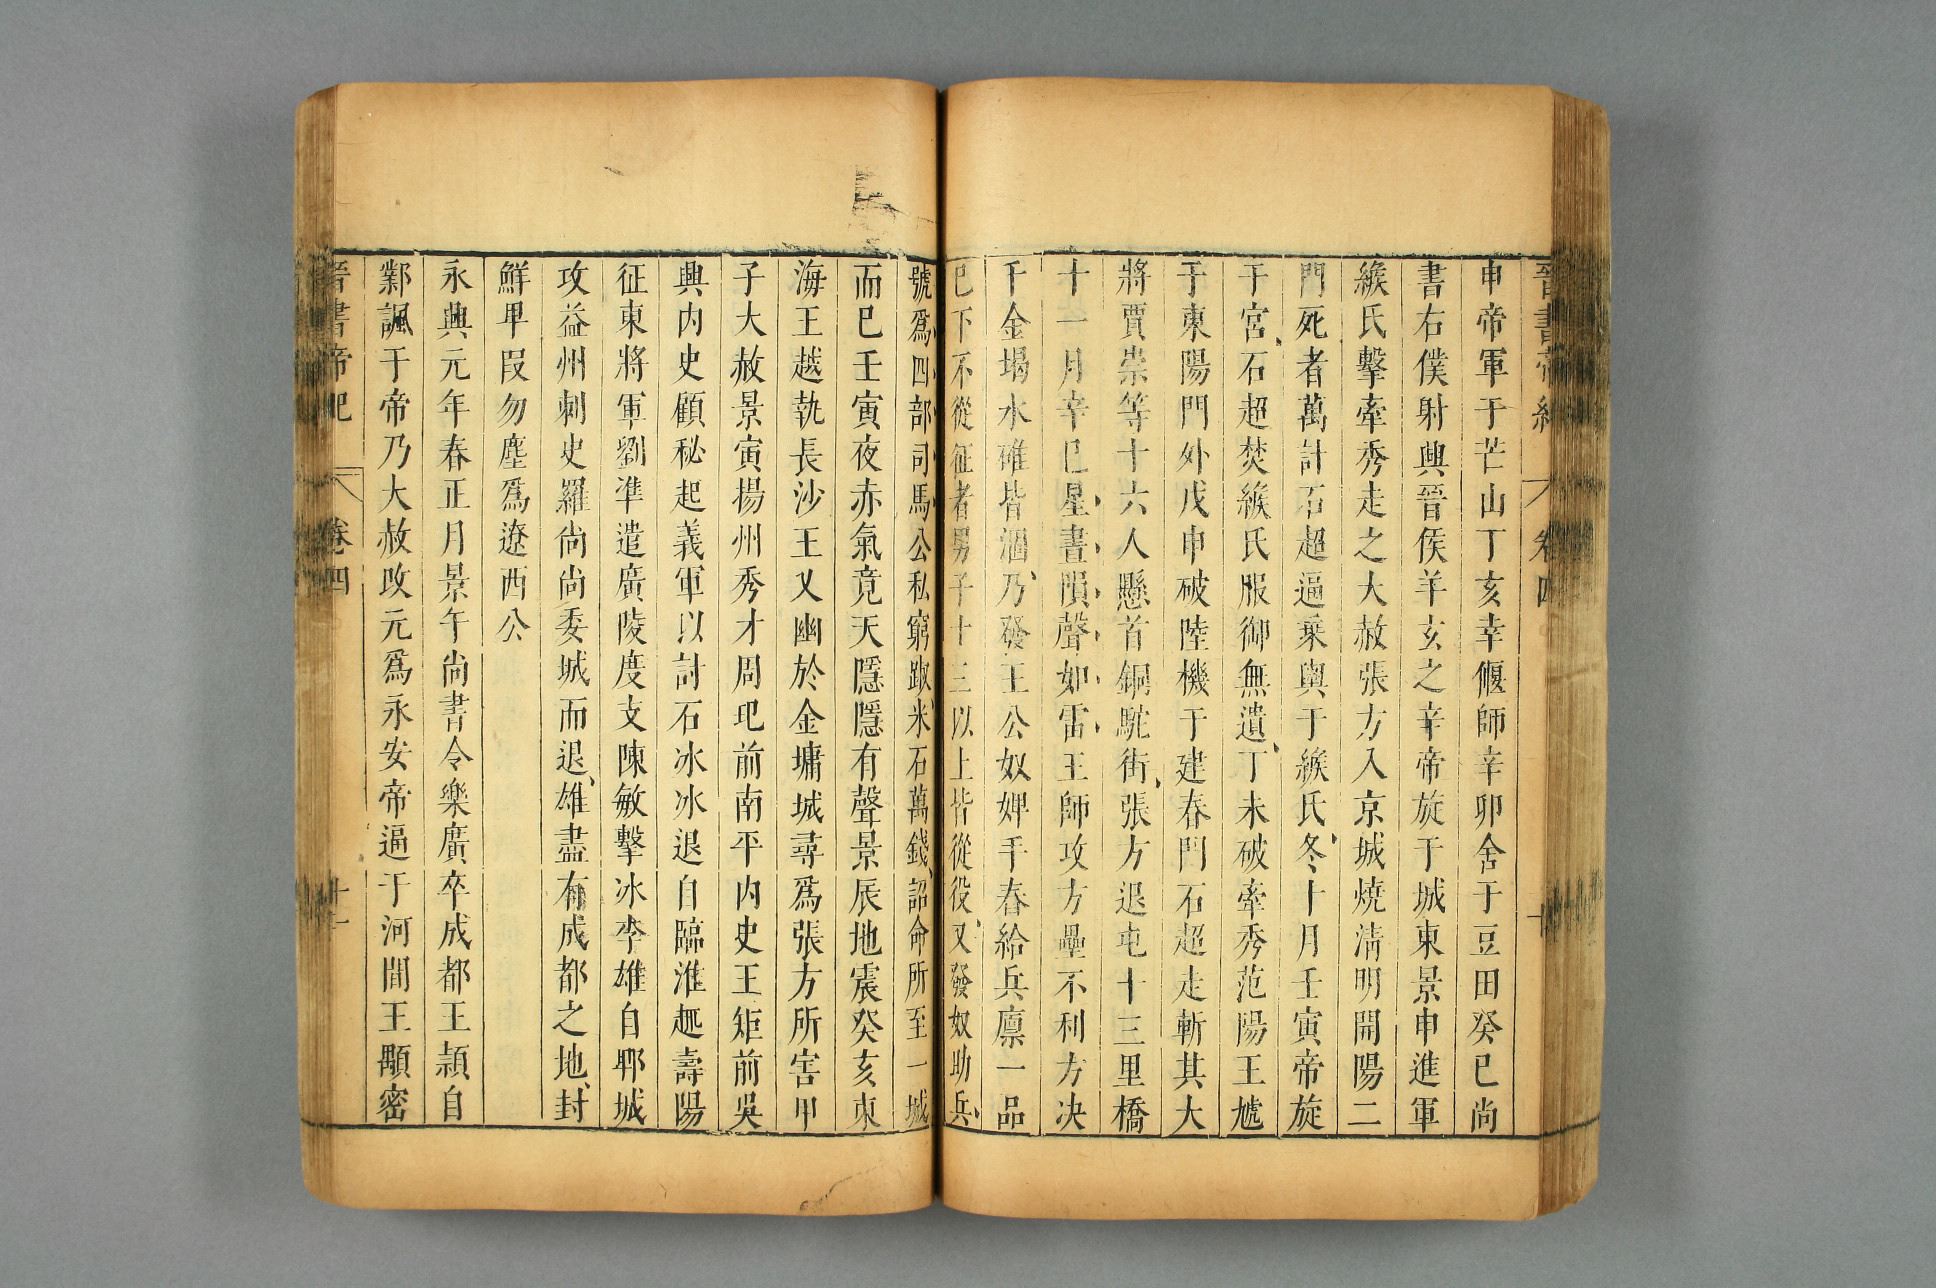 晉書帝紀 卷四 十
申帝軍于芒山丁亥幸偃師辛卯舍于豆田癸巳尚
書右僕射興晉侯羊玄之卒帝旋于城東景申進軍
緱氏擊牽秀走之大赦張方入京城燒清明開陽二
門死者萬計石超逼乗輿于緱氏冬十月壬寅帝旋
于宮石超焚緱氏服御無遺丁未破牽秀范陽王虓
于東陽門外戊申破陸機于建春門石超走斬其大
將賈崇等十六人懸首銅駝街張方退屯十三里橋
十一月辛巳星晝隕聲如雷王師攻方壘不利方决
千金堨水碓皆涸乃發王公奴婢手舂給兵廪一品
已下不從征者男子十三以上皆從役又發奴助兵
號爲四部司馬公私窮踧米石萬錢詔命所至一城
而已壬寅夜赤氣竟天隱隱有聲景辰地震癸亥東
海王越執長沙王乂幽於金墉城尋爲張方所害甲
子大赦景寅揚州秀才周玘前南平內史王矩前吳
興内史顧秘起義軍以討石冰冰退自臨淮趣壽陽
征東將軍劉準遣廣陵度支陳敏擊冰李雄自郫城
攻益州刺史羅尚尚委城而退雄盡有成都之地封
鮮卑叚勿塵爲遼西公
永興元年春正月景午尚書令樂廣卒成都王頴自
鄴諷于帝乃大赦改元爲永安帝逼于河間王顒密
晉書帝紀 卷四 十一